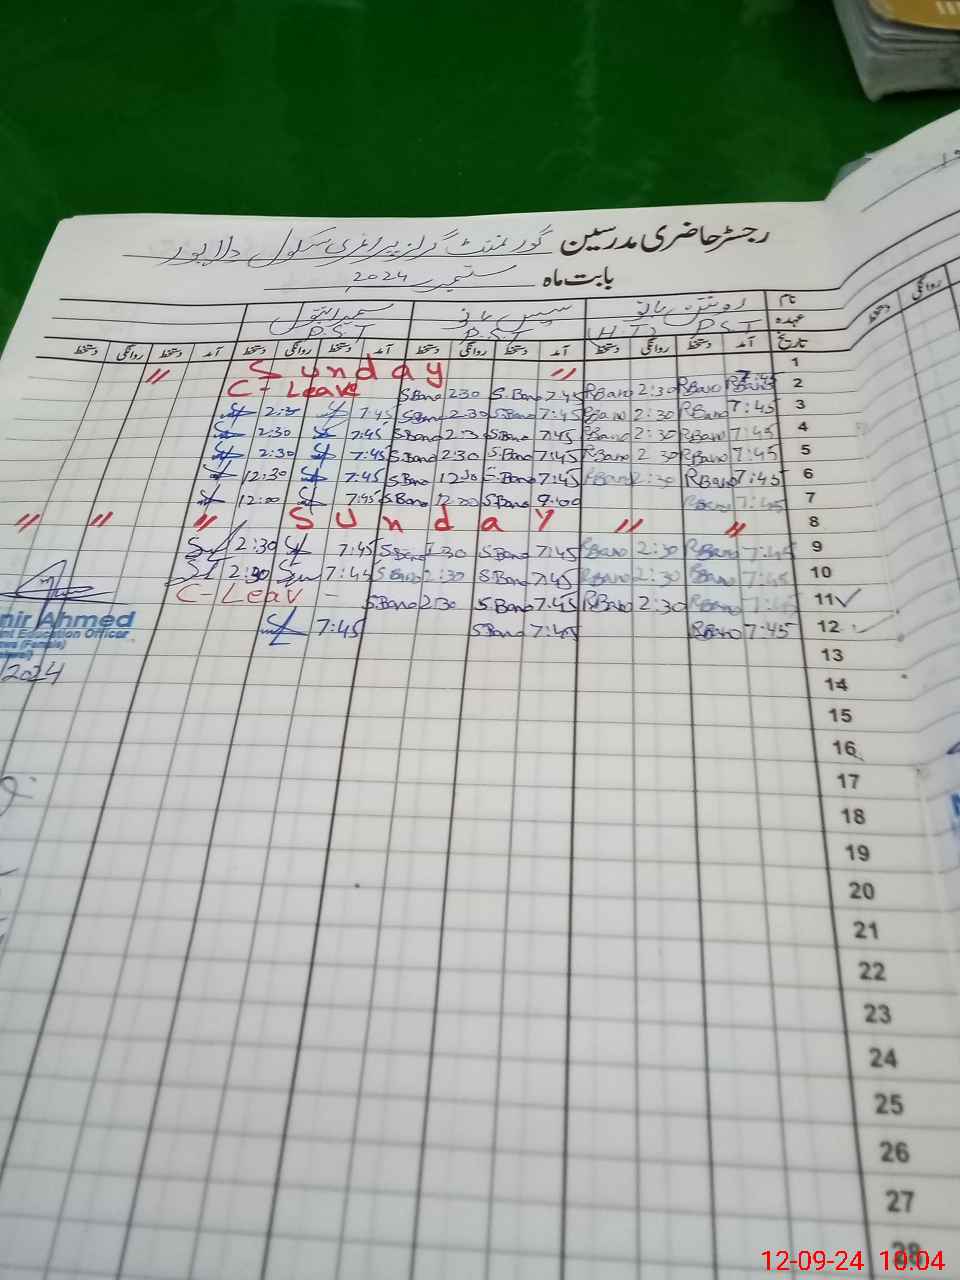 رجسٹر حاضری مدرسین گورنمنٹ گرلز پرائمری سکول دلاپور
بابت ماہ ستمبر 2024ء
نام روشن بانو سیس بانو
عہدہ PST (H.T) P.S.T P.S.T
تاریخ آمد دستخط روانگی دستخط آمد دستخط روانگی دستخط آمد دستخط روانگی دستخط آمد دستخط روانگی دستخط
1 〃 Sunday 〃
2 7:45 RBano RBano 2:30 RBano 7:45 S.Bano 2:30 S.Bano C-Leave
3 7:45 RBano 2:30 RBano 7:45 S.Bano 2:30 S.Bano 7:45 2:30
4 7:45 RBano 2:30 RBano 7:45 S.Bano 2:30 S.Bano 7:45 2:30
5 7:45 RBano 2:30 RBano 7:45 S.Bano 2:30 S.Bano 7:45 2:30
6 7:45 RBano 2:30 RBano 7:45 S.Bano 12:30 S.Bano 7:45 12:30
7 7:45 RBano S.Bano 12:00 S.Bano 7:45 12:00
8 〃 〃 Sunday 〃 〃 〃
9 7:45 RBano 2:30 RBano 7:45 S.Bano S.Bano 7:45 2:30
10 7:45 RBano 2:30 RBano 7:45 S.Bano 2:30 S.Bano 7:45 2:30
11 7:45 RBano 2:30 RBano 7:45 S.Bano 2:30 S.Bano C-Leav -
12 7:45 RBano 7:45 S.Bano 7:45
13
14
15
16
17
18
19
20
21
22
23
24
25
26
27
28
nir Ahmed
nt Education Officer
(Female)
/2024
روانگی
دستخط
12-09-24 10:04